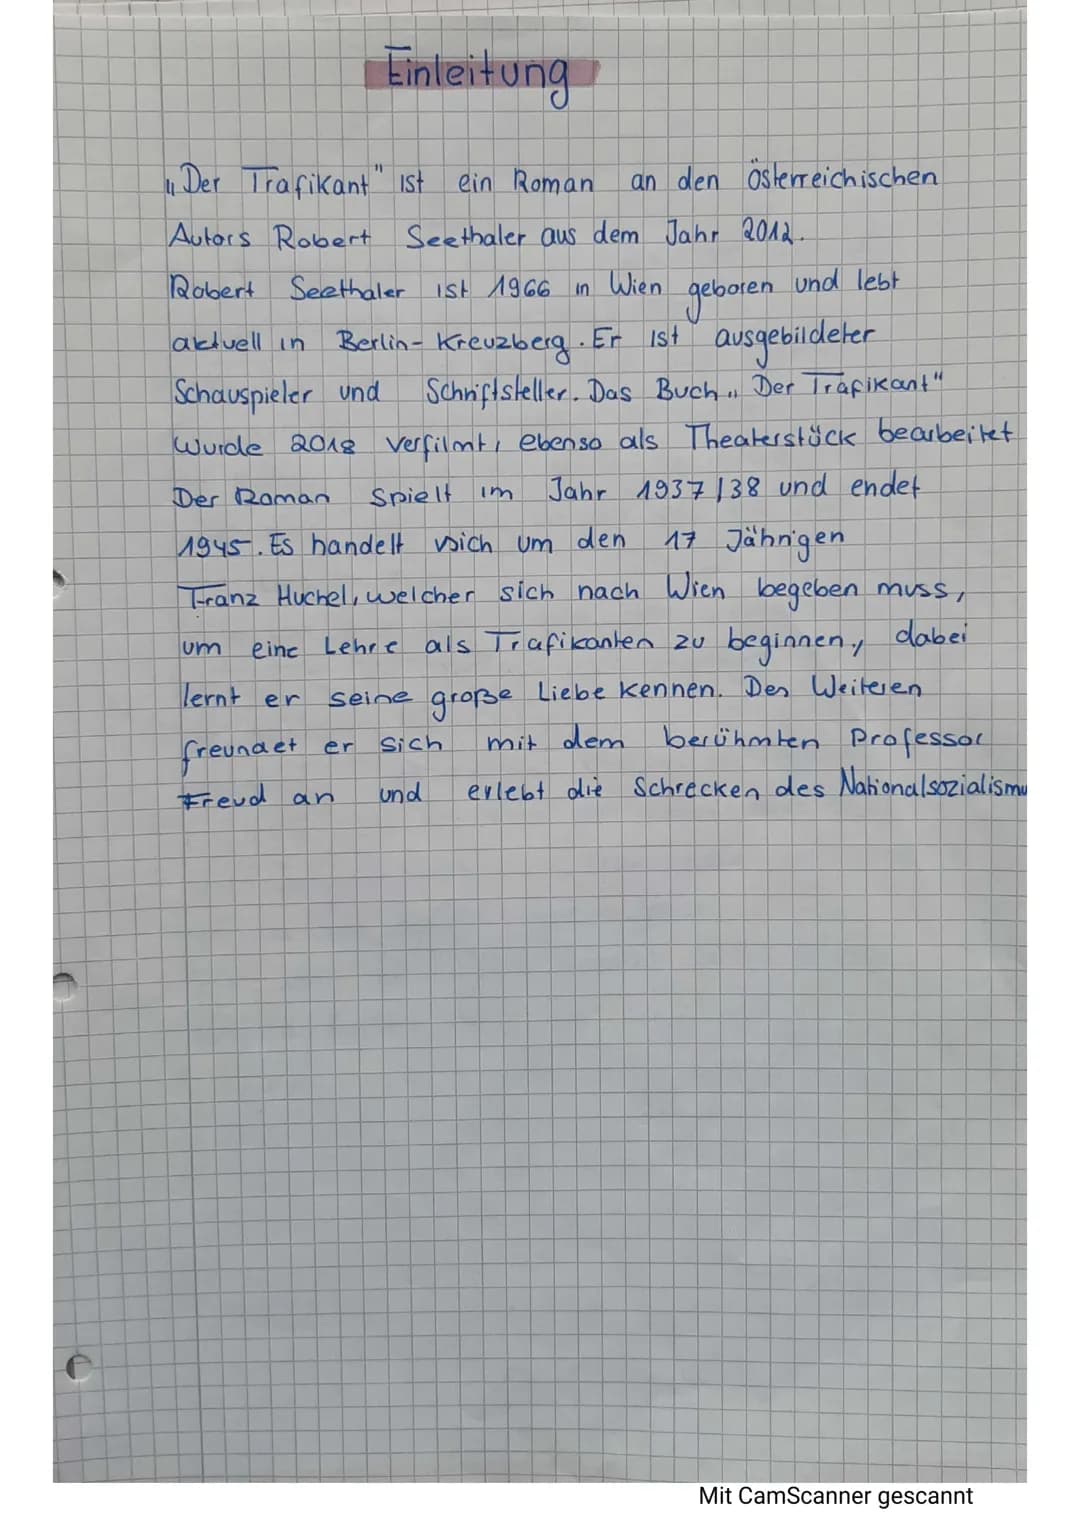 Einleitung
„Der Trafikant" ist ein Roman an den Österreichischen
Autors Robert Seethaler aus dem Jahr 2012.
Robert Seethaler ist 1966 in Wien geboren und lebt
aktuell in Berlin-Kreuzberg. Er ist ausgebildeter
Schauspieler und Schriftsteller. Das Buch „Der Trafikant"
wurde 2018 verfilmt, ebenso als Theaterstück bearbeitet
Der Roman spielt im Jahr 1937/38 und endet
1945. Es handelt sich um den 17 Jährigen
Franz Huchel, welcher sich nach Wien begeben muss,
um eine Lehre als Trafikanten zu beginnen, dabei
lernt er seine große Liebe kennen. Des Weiteren
freundet er sich mit dem berühmten Professor
Freud an und erlebt die Schrecken des Nationalsozialismu
Mit CamScanner gescannt